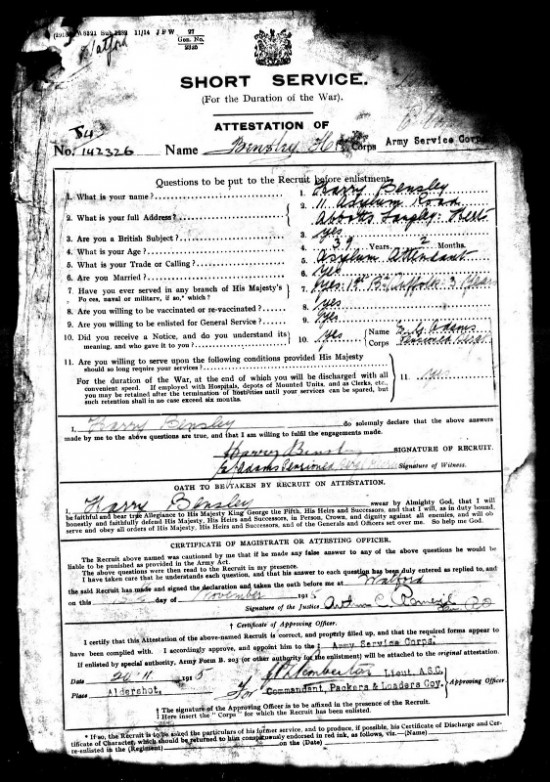 11/14 J P W 97
Gen. No.
Watford
SHORT SERVICE.
(For the Duration of the War).
ATTESTATION OF
No. 142326 Name Bensley H Corps Army Service Corps
Questions to be put to the Recruit before enlistment.
1. What is your name? 1. Harry Bensley
2. What is your full Address? 2. 11 Asylum Road
Abbotts Langley Herts
3. Are you a British Subject? 3. yes
4. What is your Age? 4. 39 Years 2 Months.
5. What is your Trade or Calling? 5. Asylum Attendant
6. Are you Married? 6. Yes
7. Have you ever served in any branch of His Majesty's
Forces, naval or military, if so,* which? 7. Yes 1st Bn Suffolks 3 Years
8. Are you willing to be vaccinated or re-vaccinated? 8. yes
9. Are you willing to be enlisted for General Service? 9. Yes
10. Did you receive a Notice, and do you understand its
meaning, and who gave it to you? 10. yes Name Adams
Corps
11. Are you willing to serve upon the following conditions provided His Majesty
should so long require your services?
For the duration of the War, at the end of which you will be discharged with all
convenient speed. If employed with Hospitals, depots of Mounted Units, and as Clerks, etc.,
you may be retained after the termination of hostilities until your services can be spared, but
such retention shall in no case exceed six months.
11. yes
I, Harry Bensley do solemnly declare that the above answers
made by me to the above questions are true, and that I am willing to fulfil the engagements made.
Harry Bensley SIGNATURE OF RECRUIT.
Adams Pensioner Signature of Witness.
OATH TO BE TAKEN BY RECRUIT ON ATTESTATION.
I, Harry Bensley swear by Almighty God, that I will
be faithful and bear true Allegiance to His Majesty King George the Fifth, His Heirs and Successors, and that I will, as in duty bound,
honestly and faithfully defend His Majesty, His Heirs and Successors, in Person, Crown, and dignity against all enemies, and will ob-
serve and obey all orders of His Majesty, His Heirs and Successors, and of the Generals and Officers set over me. So help me God.
CERTIFICATE OF MAGISTRATE OR ATTESTING OFFICER.
The Recruit above named was cautioned by me that if he made any false answer to any of the above questions he would be
liable to be punished as provided in the Army Act.
The above questions were then read to the Recruit in my presence.
I have taken care that he understands each question, and that his answer to each question has been duly entered as replied to, and
the said Recruit has made and signed the declaration and taken the oath before me at Watford
on this day of November 1915
Signature of the Justice
† Certificate of Approving Officer.
I certify that this Attestation of the above-named Recruit is correct, and properly filled up, and that the required forms appear to
have been complied with. I accordingly approve, and appoint him to the ‡ Army Service Corps.
If enlisted by special authority, Army Form B. 203 (or other authority for the enlistment) will be attached to the original attestation.
Date 24 11 1915
Lieut. A.S.C.
Place Aldershot. For Commandant, Packers & Loaders Coy. Approving Officer.
† The signature of the Approving Officer is to be affixed in the presence of the Recruit.
‡ Here insert the "Corps" for which the Recruit has been enlisted.
* If so, the Recruit is to be asked the particulars of his former service, and to produce, if possible, his Certificate of Discharge and Cer-
tificate of Character, which should be returned to him conspicuously endorsed in red ink, as follows, viz.—(Name)
re-enlisted in the (Regiment) on the (Date)